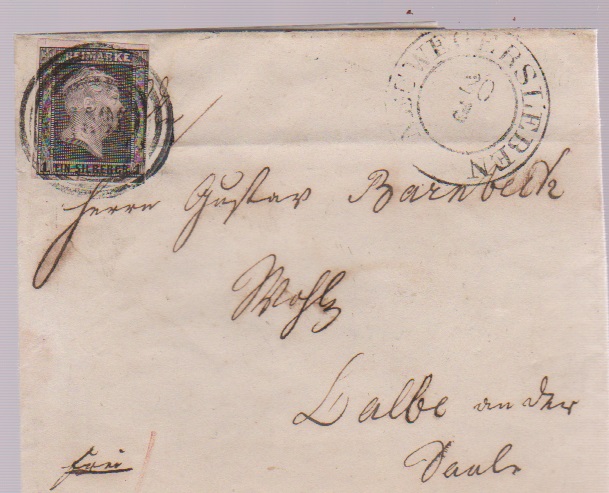 FREIMARKE
1 EIN SILBERGR. 1
NEUWEGERSLEBEN
20
Herrn Gustav Barnbeck
Wohlg
Calbe an der
Saale
frei